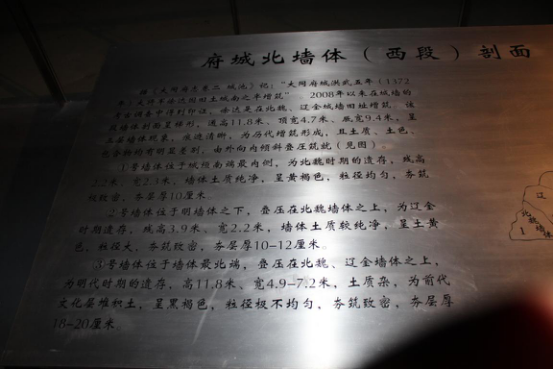 府城北墙体（西段）剖面
据《大同府志卷二 城池》记："大同府城洪武五年（1372
年）大将军徐达因旧土城南之半增筑"。2008年以来在城墙的
考古调查中得到印证，
墙体剖断呈梯形，通高11.8米，顶宽4.7米、底宽9.4米，呈
三层墙体现象，痕迹清晰，为历代增筑形成，且土质、土色、
包含物均有明显差别，由外向内倾斜叠压筑就（见图）
1号墙体位于城垣南端最内侧，为北魏时期的遗存，残高
墙体土质纯净，呈黄褐色，粒径均匀，夯筑
极致密，夯层厚10厘米。
2号墙体位于明墙体之下，叠压在北魏墙体之上，为辽金
时期遗存，残高3.9米、宽2.2米，墙体土质较纯净，呈土黄
色，粒径大，夯筑致密，夯层厚10-12厘米。
3号墙体位于墙体最北端，叠压在北魏、辽金墙体之上，
为明代时期的遗存，高11.8米、宽4.9-7.2米，土质杂，为前代
文化层堆积土，呈黑褐色，粒径极不均匀，夯筑致密，夯层厚
18-20厘米
辽
北魏墙体
1